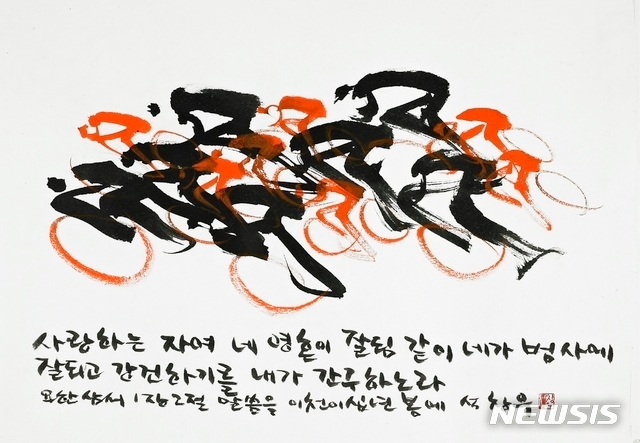 사랑하는 자여 네 영혼이 잘됨 같이 네가 범사에
잘되고 강건하기를 내가 간구하노라
요한삼서 1장2절 말씀을 이천이십년 봄에 석창우
NEWSIS